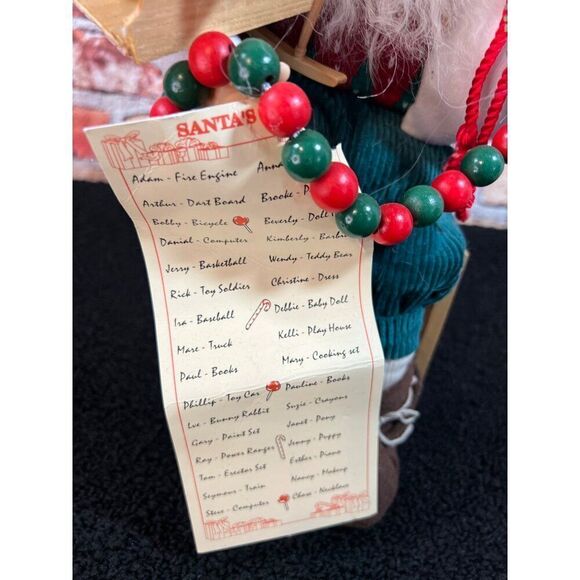 SANTA'S
Adam - Fire Engine
Arthur - Dart Board
Bobby - Bicycle
Danial - Computer
Jerry - Basketball
Rick - Toy Soldier
Ira - Baseball
Marc - Truck
Paul - Books
Phillip - Toy Car
Lve - Bunny Rabbit
Gary - Paint Set
Ray - Power Ranger
Tom - Erector Set
Seymour - Train
Steve - Computer
Anna
Brooke - P
Beverly - Doll
Kimberly - Barbie
Wendy - Teddy Bear
Christine - Dress
Debbie - Baby Doll
Kelli - Play House
Mary - Cooking set
Pauline - Books
Suzie - Crayons
Janet - Pony
Jenny - Puppy
Esther - Piano
Nancy - Makeup
Chase - Necklace